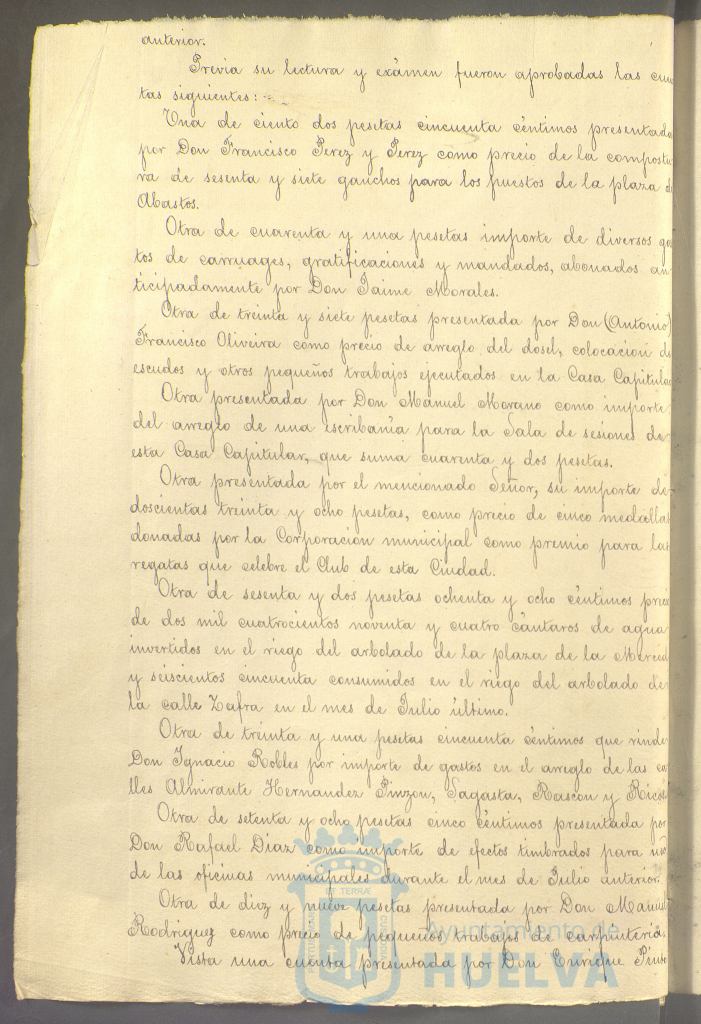 anterior.
Previa su lectura y exámen fueron aprobadas las cuen
tas siguientes:
Una de ciento dos pesetas cincuenta céntimos presentada
por Don Francisco Perez y Perez como precio de la compostu
ra de sesenta y siete gauchos para los puestos de la plaza de
Abastos.
Otra de cuarenta y una pesetas importe de diversos gas
tos de carruages, gratificaciones y mandados, abonados an
ticipadamente por Don Jaime Morales.
Otra de treinta y siete pesetas presentada por Don (Antonio)
Francisco Oliveira como precio de arreglo del dosel, colocación de
escudos y otros pequeños trabajos ejecutados en la Casa Capitular
Otra presentada por Don Manuel Morano como importe
del arreglo de una escribanía para la Sala de sesiones de
esta Casa Capitular, que suma cuarenta y dos pesetas.
Otra presentada por el mencionado Señor, su importe de
doscientas treinta y ocho pesetas, como precio de cinco medallas
donadas por la Corporacion municipal como premio para las
regatas que celebre el Club de esta Ciudad.
Otra de sesenta y dos pesetas ochenta y ocho céntimos precio
de dos mil cuatrocientos noventa y cuatro cántaros de agua
invertidos en el riego del arbolado de la plaza de la Merced
y seiscientos cincuenta consumidos en el riego del arbolado de
la calle Zafra en el mes de Julio último.
Otra de treinta y una pesetas cincuenta céntimos que rinde
Don Ignacio Robles por importe de gastos en el arreglo de las ca
lles Almirante Hernandez Pinzon, Sagasta, Rascon y
Otra de setenta y ocho pesetas cinco céntimos presentada por
Don Rafael Diaz como importe de efectos timbrados para uso
de las oficinas municipales durante el mes de Julio anterior.
Otra de diez y nueve pesetas presentada por Don Manuel
Rodriguez como precio de pequeños trabajos de carpintería.
Vista una cuenta presentada por Don Enrique
Ayuntamiento de
HUELVA